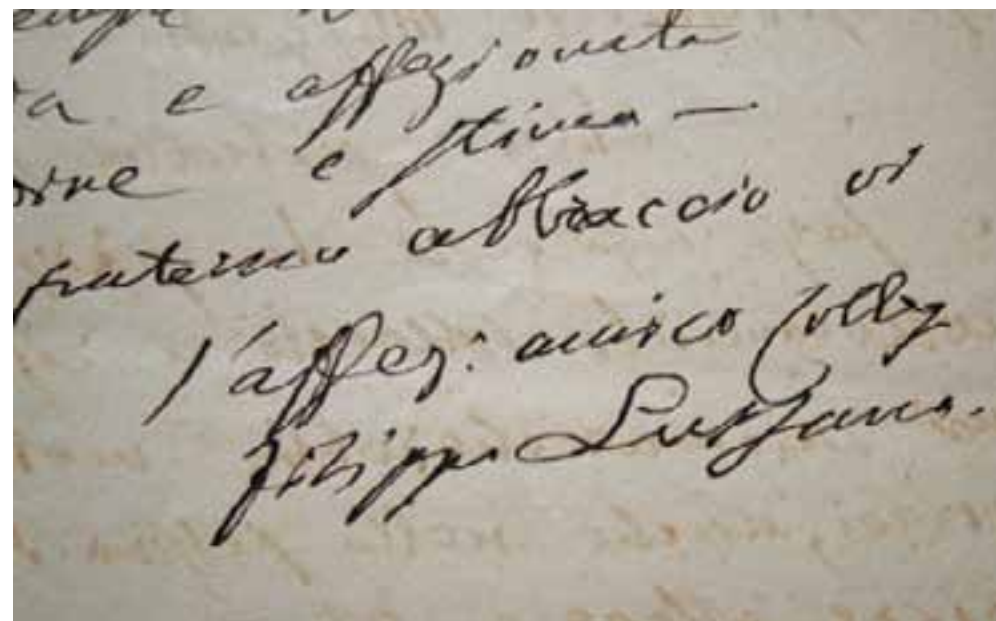 e affezionata
e stima —
fraterno abbraccio vi
l'affez: amico Colleg
Filippo Lussana.